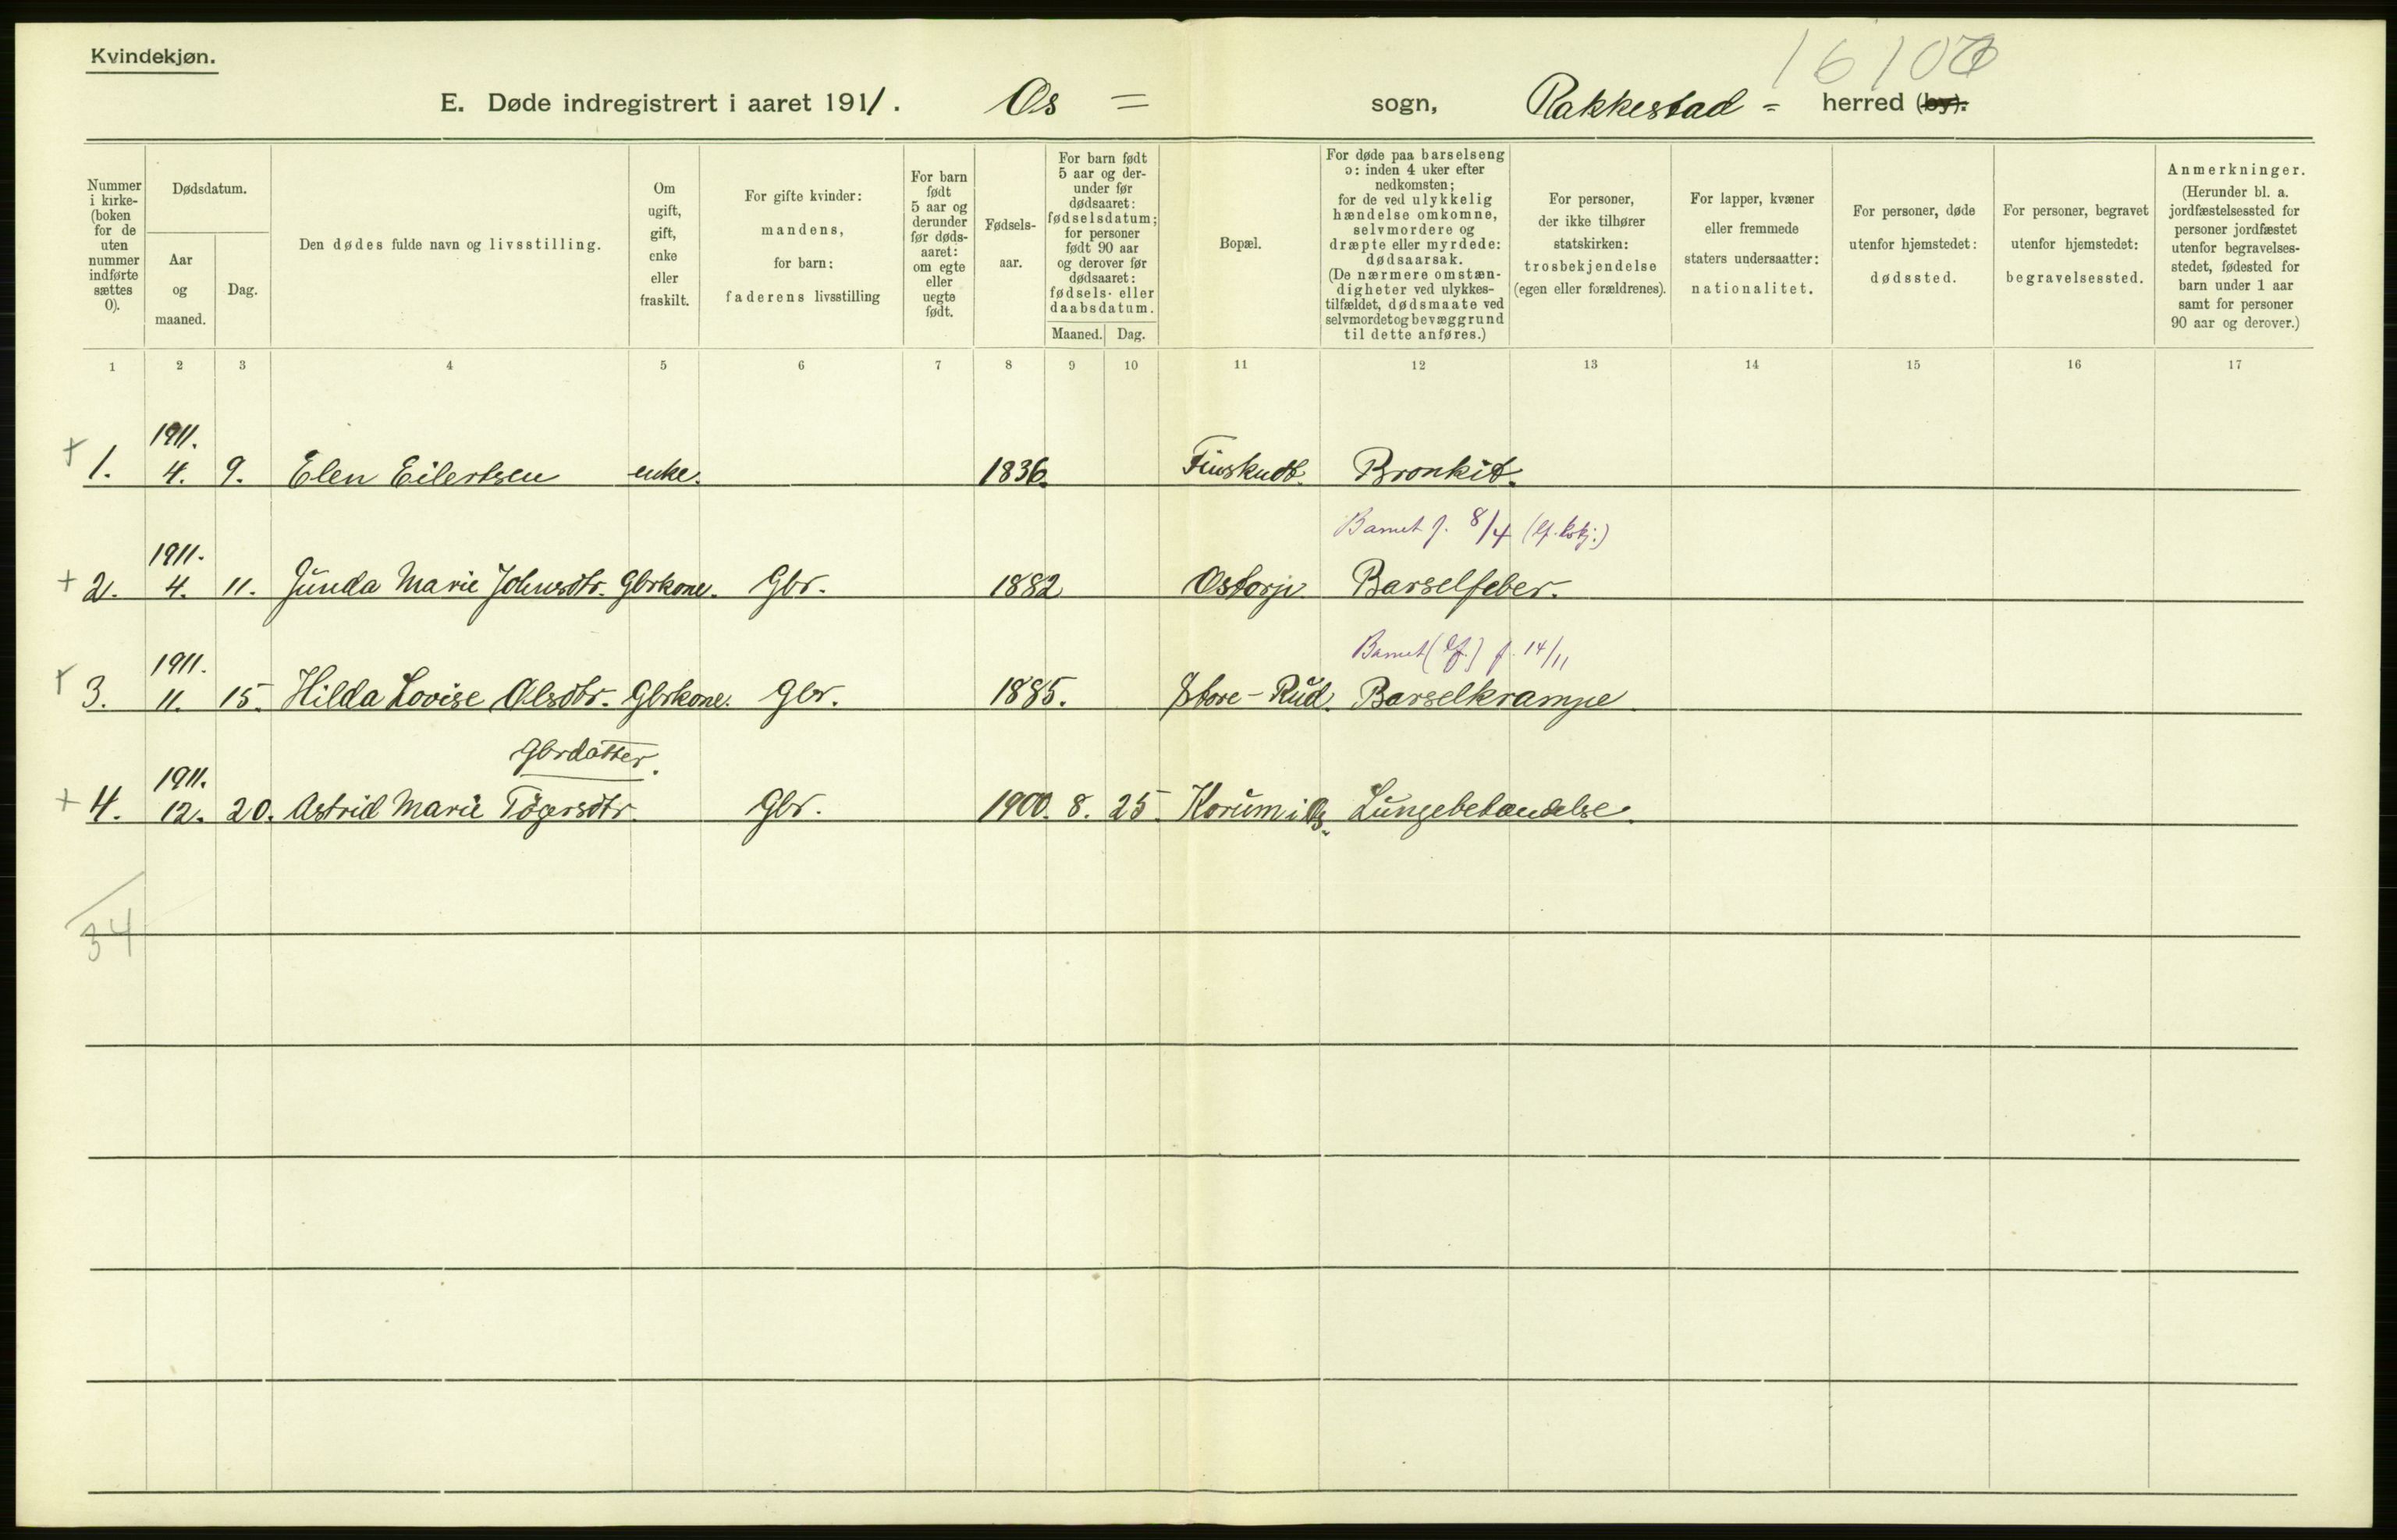 Kvindekjøn.
16106
E. Døde indregistrert i aaret 1911. Os = sogn, Rakkestad = herred (by).
Nummer i kirkeboken (for de uten nummer indførte sættes 0).
Dødsdatum.
Aar og maaned.
Dag.
Den dødes fulde navn og livsstilling.
Om ugift, gift, enke eller fraskilt.
For gifte kvinder: mandens, for barn: faderens livsstilling
For barn født 5 aar og derunder før dødsaaret: om egte eller uegte født.
Fødselsaar.
For barn født 5 aar og derunder før dødsaaret: fødselsdatum; for personer født 90 aar og derover før dødsaaret: fødsels- eller daabsdatum.
Maaned. Dag.
Bopæl.
For døde paa barselseng ɔ: inden 4 uker efter nedkomsten; for de ved ulykkelig hændelse omkomne, selvmordere og dræpte eller myrdede: dødsaarsak. (De nærmere omstændigheter ved ulykkestilfældet, dødsmaate ved selvmordet og bevæggrund til dette anføres.)
For personer, der ikke tilhører statskirken: trosbekjendelse (egen eller forældrenes).
For lapper, kvæner eller fremmede staters undersaatter: nationalitet.
For personer, døde utenfor hjemstedet: dødssted.
For personer, begravet utenfor hjemstedet: begravelsessted.
Anmerkninger. (Herunder bl. a. jordfæstelsessted for personer jordfæstet utenfor begravelsesstedet, fødested for barn under 1 aar samt for personer 90 aar og derover.)
1 2 3 4 5 6 7 8 9 10 11 12 13 14 15 16 17
1911.
+ 1. 4. 9. Elen Eilertsen enke. 1836. Finskudt. Bronkit.
1911. Barnet f. 8/4
+ 2. 4. 11. Gunda Marie Johnsdtr. Gbrkone. Gbr. 1882 Ostorp Barselfeber.
1911. Barnet (lf.) f. 14/11
+ 3. 11. 15. Hilda Lovise Olsdtr. Gbrkone. Gbr. 1885. Store-Rud. Barselkrampe
Gbrdatter.
1911.
+ 4. 12. 20. Astrid Marie Tögersdtr. Gbr. 1900. 8. 25. Korum i Os. Lungebetændelse.
34